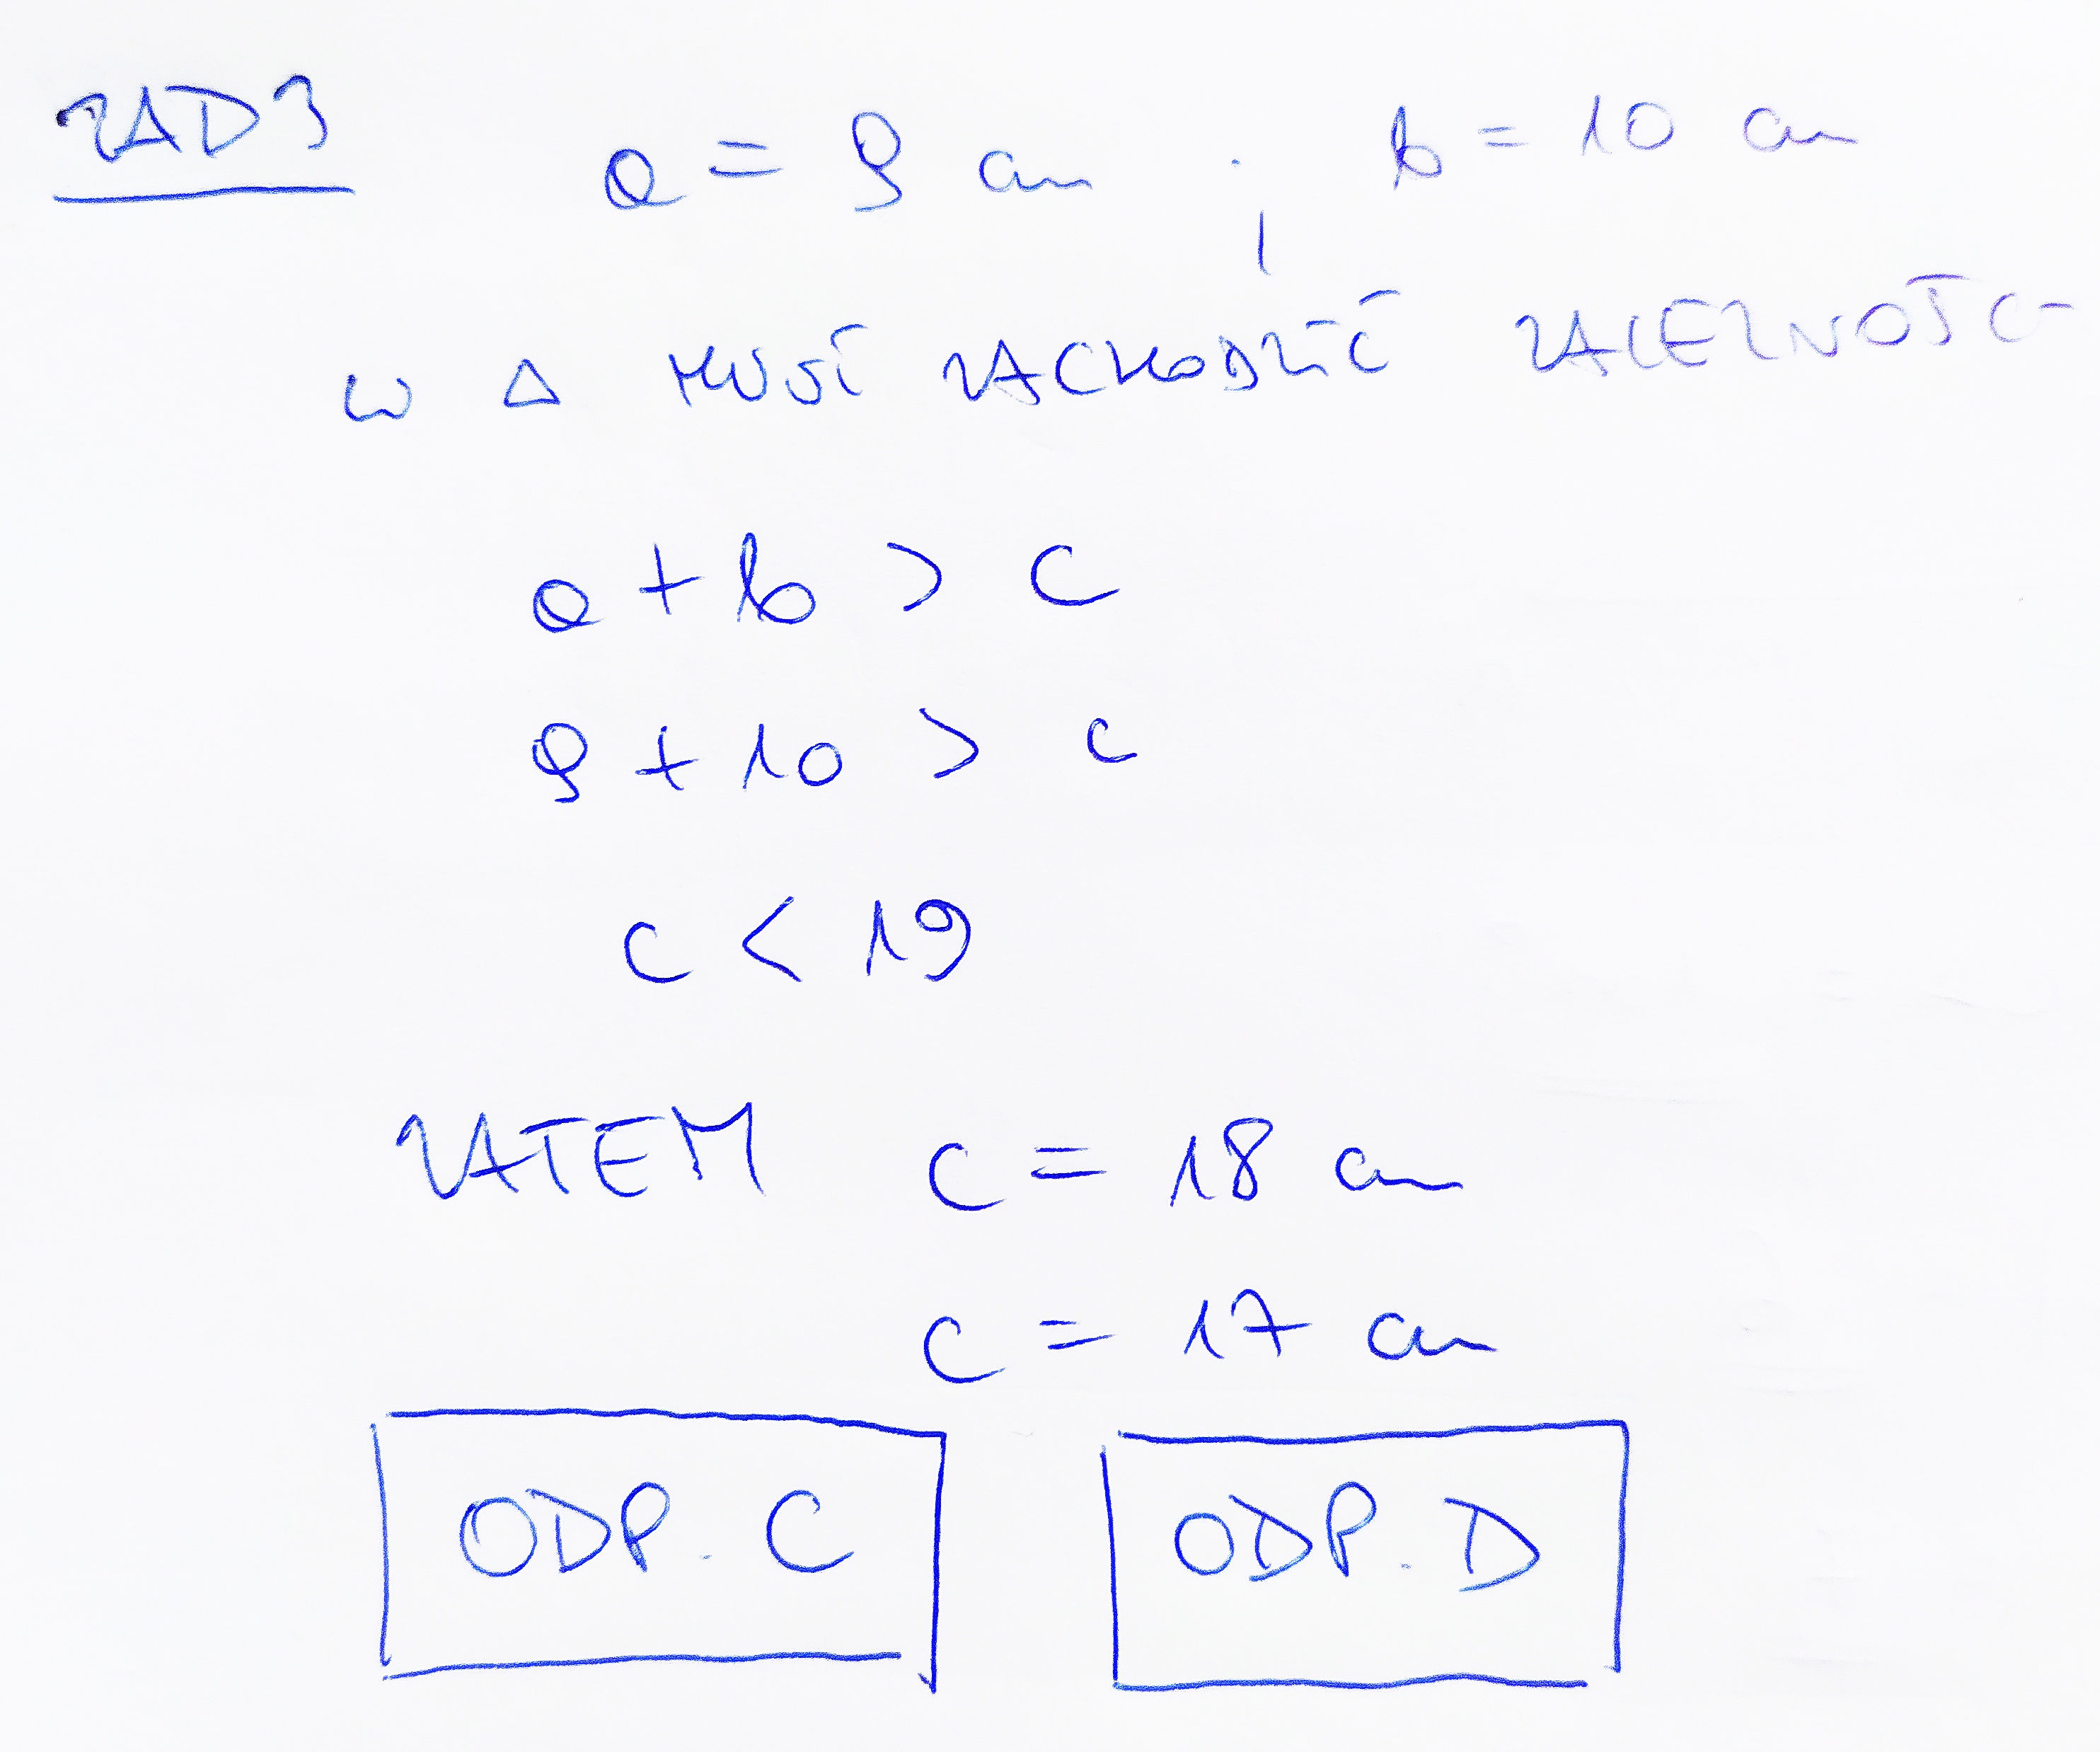 ZAD 3 a = 9 cm ; b = 10 cm
W Δ MUSI ZACHODZIĆ ZALEŻNOŚĆ
a + b > c
9 + 10 > c
c < 19
ZATEM c = 18 cm
c = 17 cm
ODP. C ODP. D